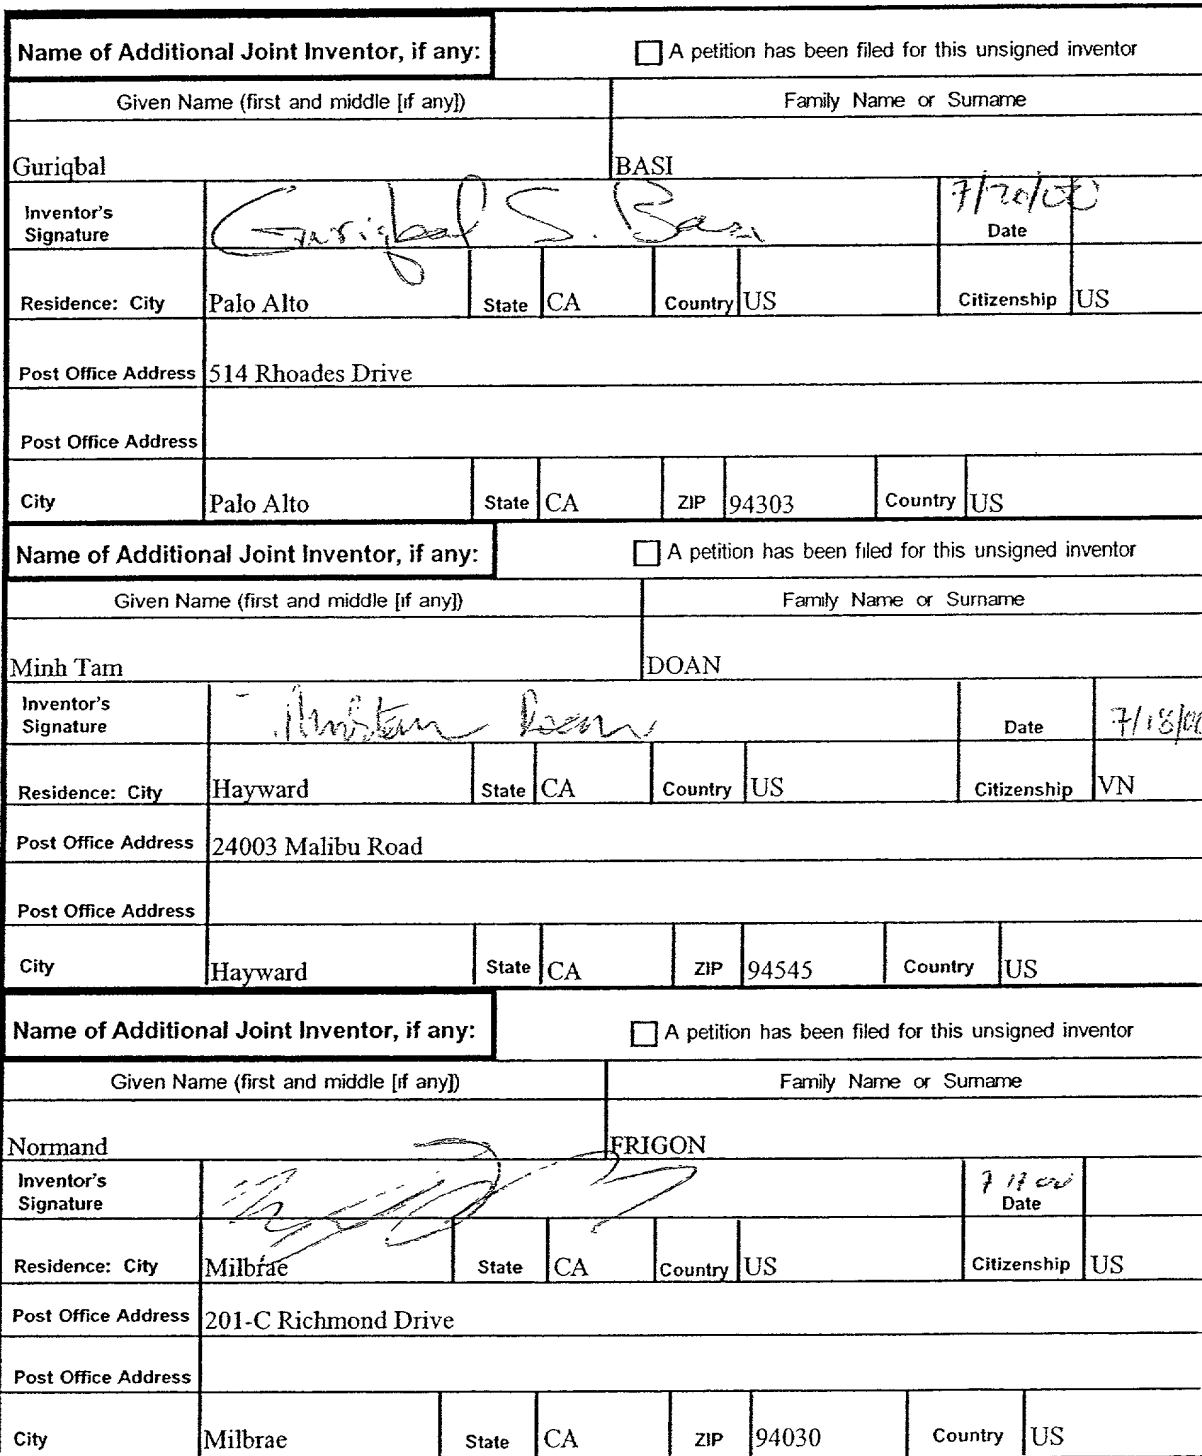 Name of Additional Joint Inventor, if any: A petition has been filed for this unsigned inventor
Given Name (first and middle [if any]) Family Name or Surname
Guriqbal BASI
Inventor's Signature Guriqbal S. Basi Date 7/20/00
Residence: City Palo Alto State CA Country US Citizenship US
Post Office Address 514 Rhoades Drive
Post Office Address
City Palo Alto State CA ZIP 94303 Country US
Name of Additional Joint Inventor, if any: A petition has been filed for this unsigned inventor
Given Name (first and middle [if any]) Family Name or Surname
Minh Tam DOAN
Inventor's Signature Date 7/18/00
Residence: City Hayward State CA Country US Citizenship VN
Post Office Address 24003 Malibu Road
Post Office Address
City Hayward State CA ZIP 94545 Country US
Name of Additional Joint Inventor, if any: A petition has been filed for this unsigned inventor
Given Name (first and middle [if any]) Family Name or Surname
Normand FRIGON
Inventor's Signature Date
Residence: City Milbrae State CA Country US Citizenship US
Post Office Address 201-C Richmond Drive
Post Office Address
City Milbrae State CA ZIP 94030 Country US